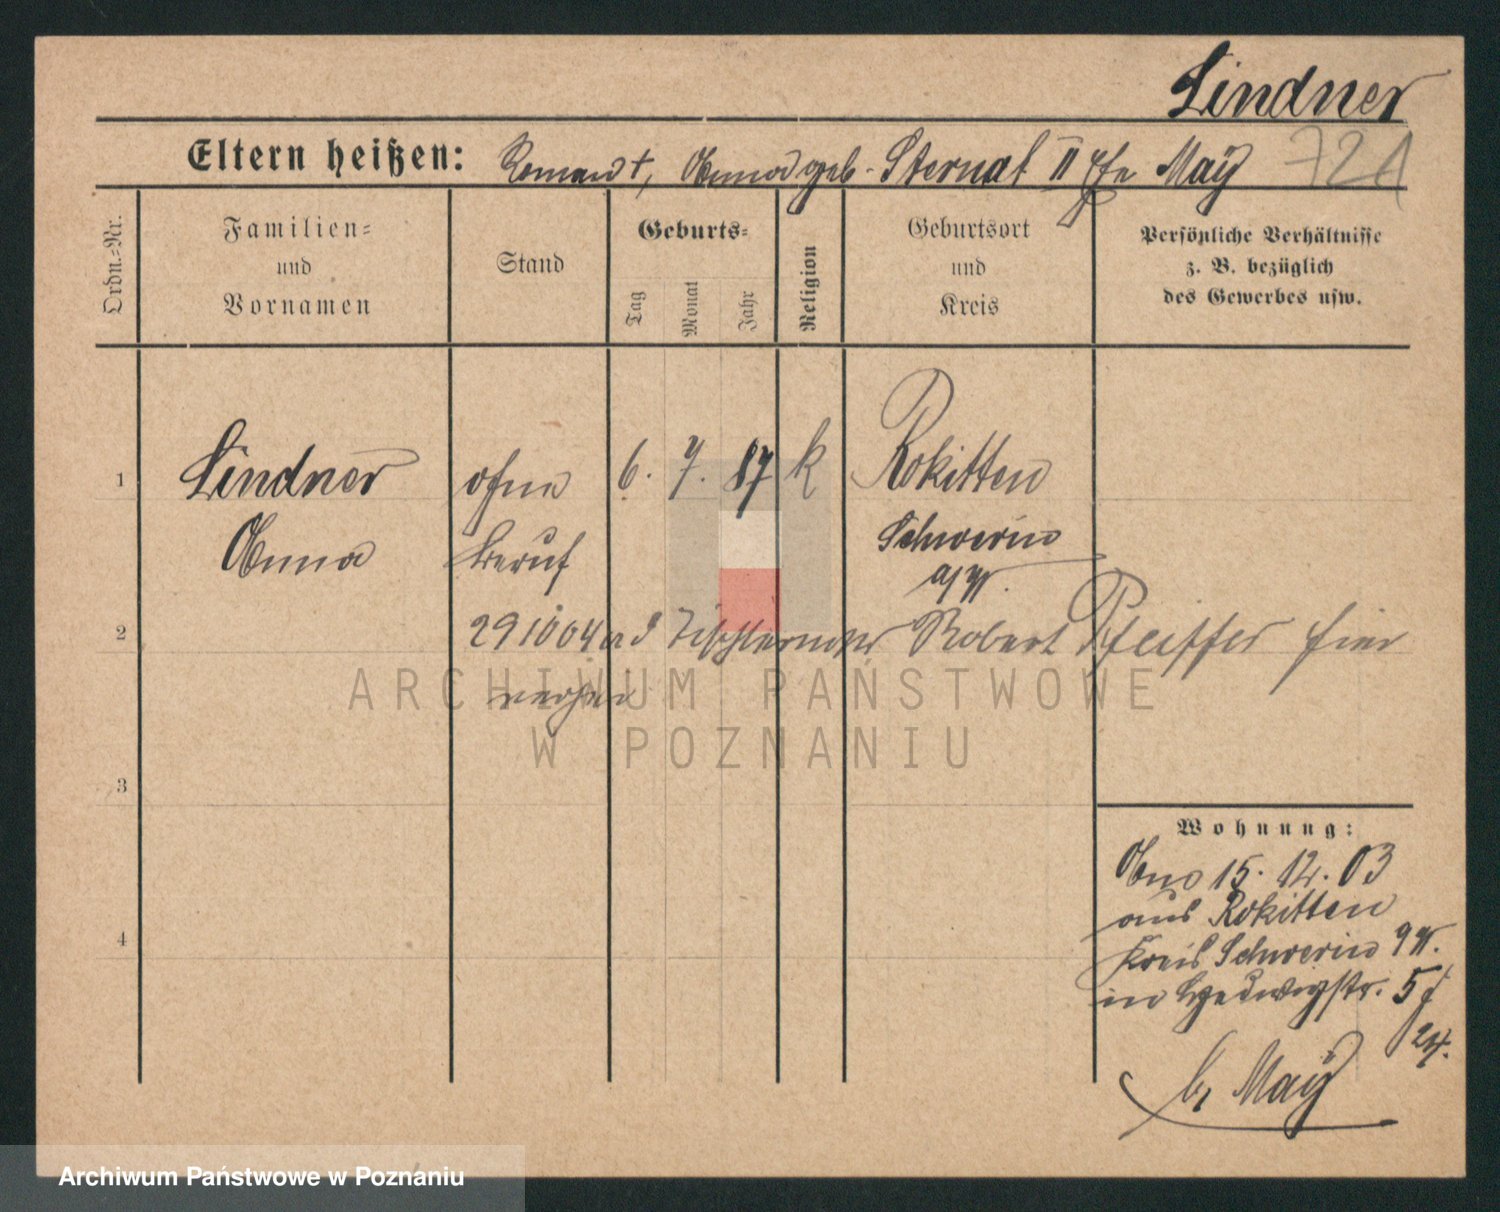 Lindner
Eltern heißen: Roman †, Anna geb. Sternal II Ehe May 721
Ordn.=Nr.
Familien=
und
Vornamen
Stand
Geburts=
Tag
Monat
Jahr
Religion
Geburtsort
und
Kreis
Persönliche Verhältnisse
z. B. bezüglich
des Gewerbes usw.
1 Lindner ohne 6. 7. 87 k Rokitten
Anna Beruf Schwerin
a/W.
2 29 10 04 ad Tischler Robert Pfeiffer hier
3
4
Wohnung:
Ano 15. 12. 03
aus Rokitten
Kreis Schwerin a W.
in Hedwigstr. 5
b/ May
ARCHIWUM PAŃSTWOWE
W POZNANIU
Archiwum Państwowe w Poznaniu